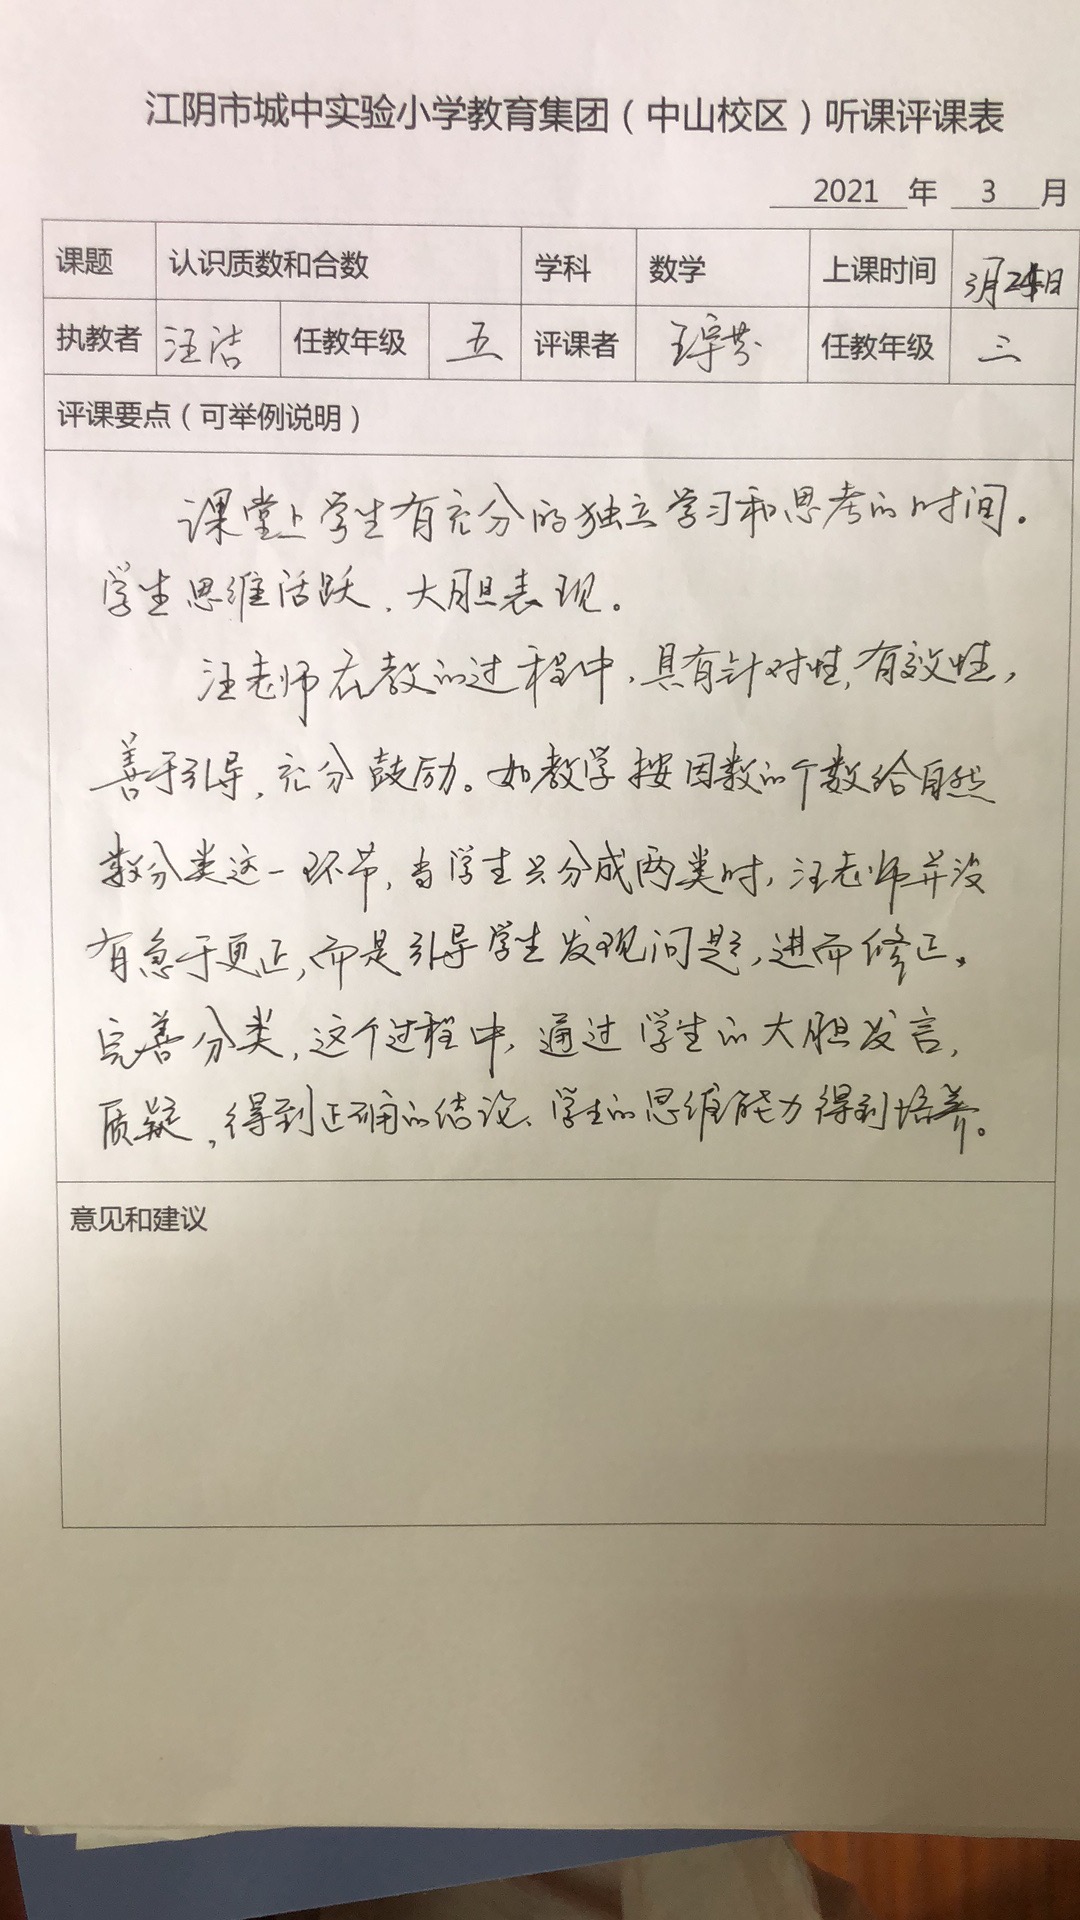 江阴市城中实验小学教育集团（中山校区）听课评课表
2021 年 3 月
课题 认识质数和合数 学科 数学 上课时间 3月24日
执教者 汪洁 任教年级 五 评课者 任教年级 三
评课要点（可举例说明）
课堂上学生有充分的独立学习和思考的时间.
学生思维活跃、大胆表现。
汪老师在教的过程中，具有针对性，有效性，
善于引导，充分鼓励。如教学按因数的个数给自然
数分类这一环节，当学生只分成两类时，汪老师并没
有急于更正，而是引导学生发现问题，进而修正、
完善分类，这个过程中，通过学生的大胆发言，
质疑，得到正确的结论、学生的思维能力得到培养。
意见和建议